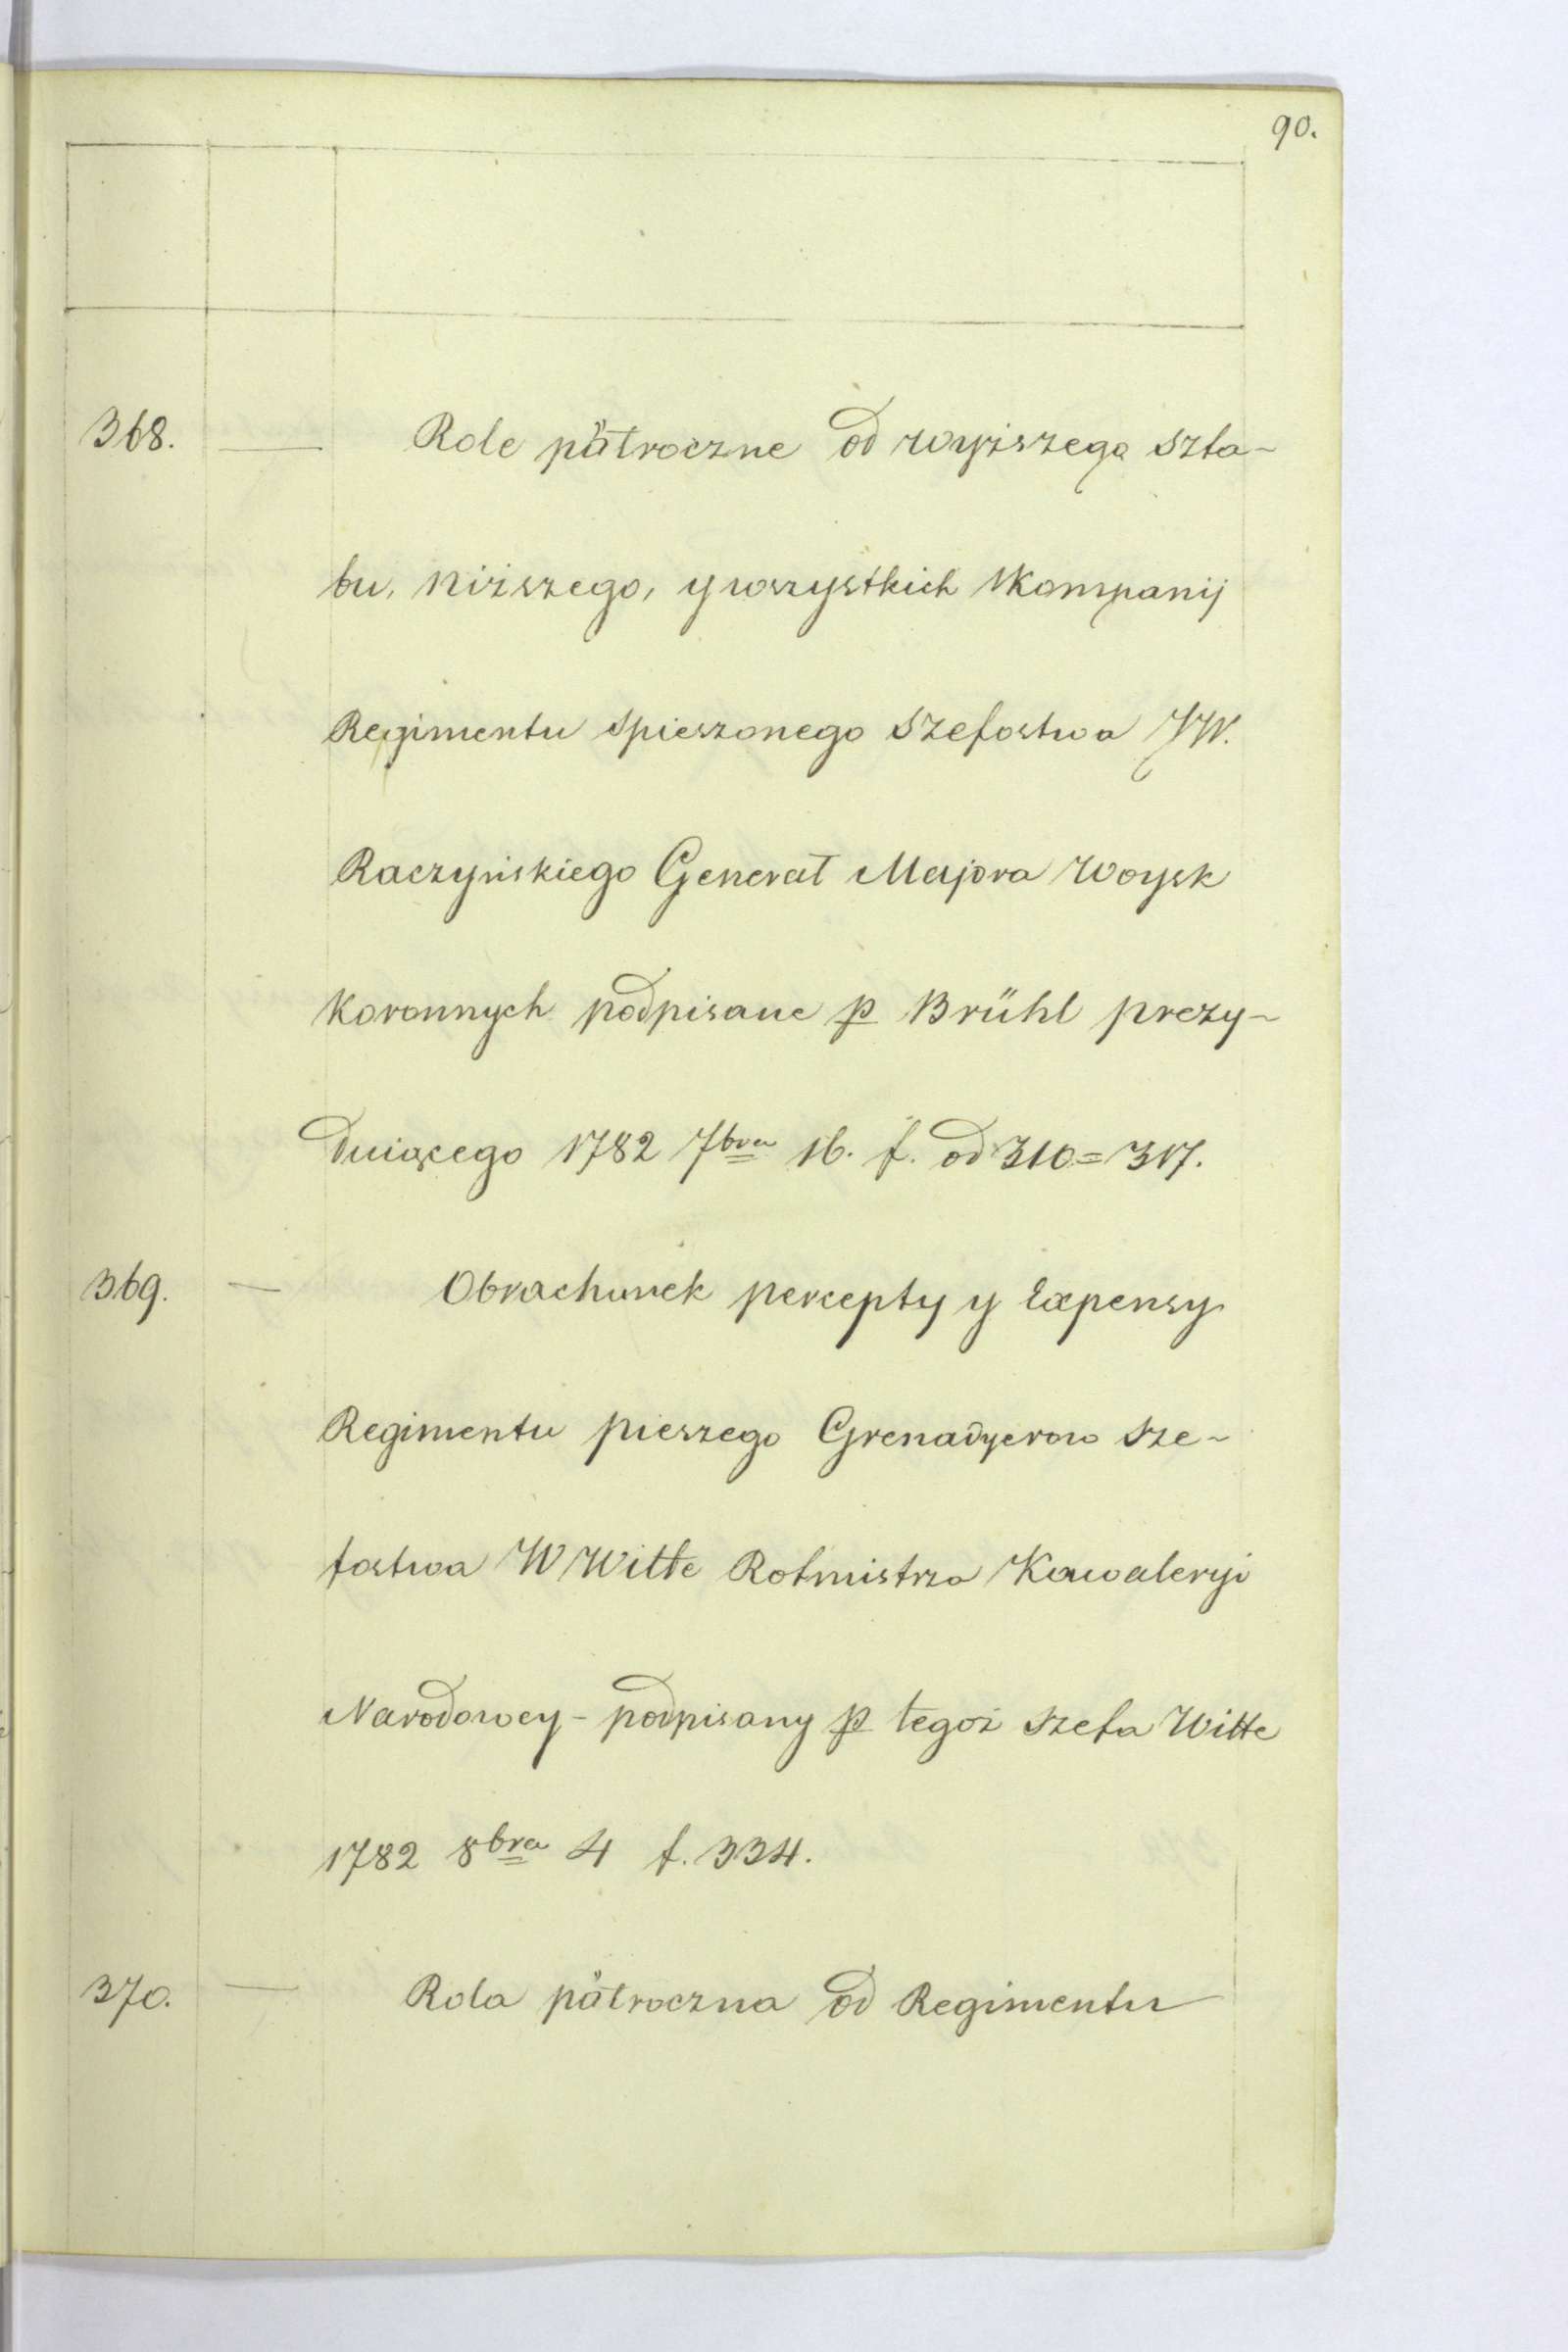 90.
368. — Role półroczne od wyższego szta-
bu, niższego, y wszystkich Kompanij
Regimentu spieszonego Szefostwa JW.
Raczyńskiego Generał Majora Woysk
Koronnych podpisane p Brühl prezy-
duiącego 1782 7bra 16. f. od 310=317.
369. — Obrachunek percepty y Expensy
Regimentu pieszego Grenadyerow Sze-
fostwa W Witte Rotmistrza Kawaleryi
Narodowey - podpisany p tegoż Szefa Witte
1782 8bra 4 f. 334.
370. — Rola półroczna od Regimentu